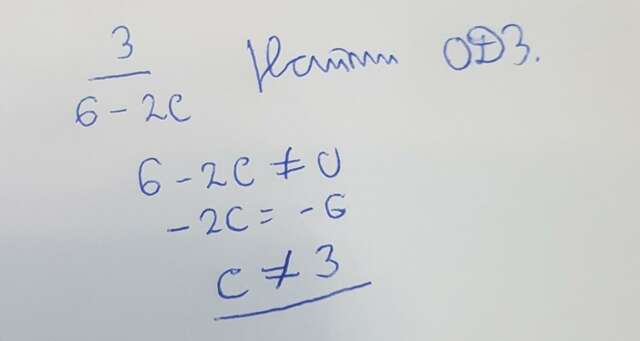 3/(6-2c) Найти ОДЗ.
6-2c ≠ 0
-2c = -6
c ≠ 3